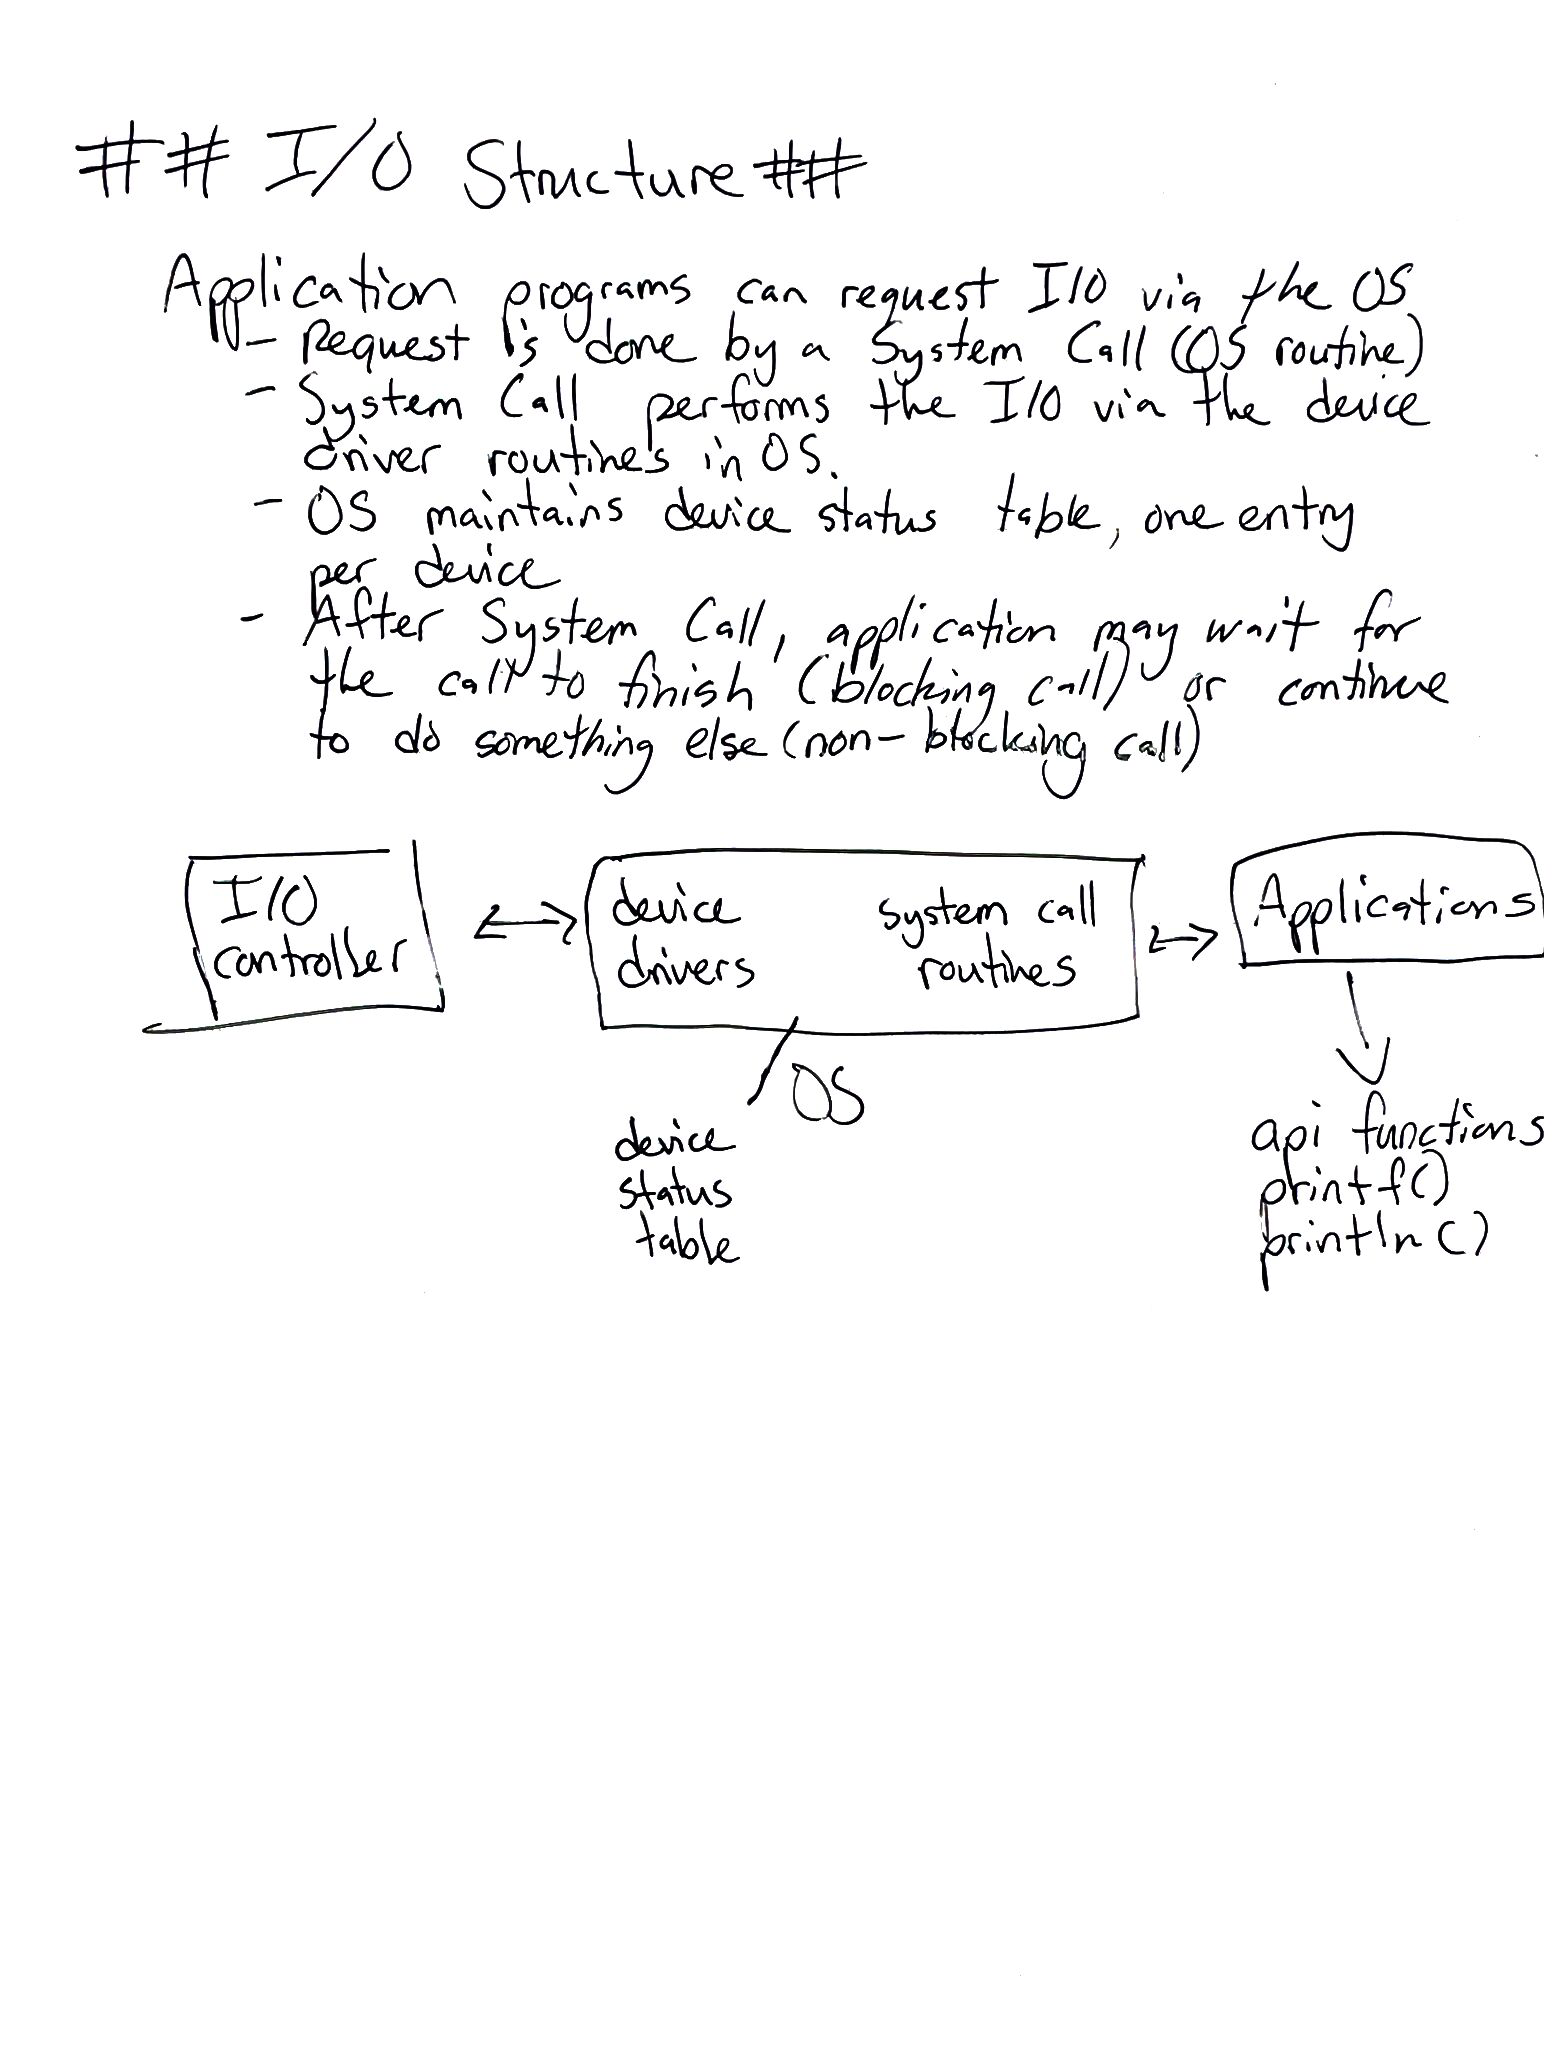 ## I/O Structure ##
Application programs can request I/O via the OS
- Request is done by a System Call (OS routine)
- System Call performs the I/O via the device
driver routines in OS.
- OS maintains device status table, one entry
per device
- After System Call, application may wait for
the call to finish (blocking call) or continue
to do something else (non-blocking call)
I/O
controller
device
drivers
system call
routines
Applications
OS
device
status
table
api functions
printf()
println()